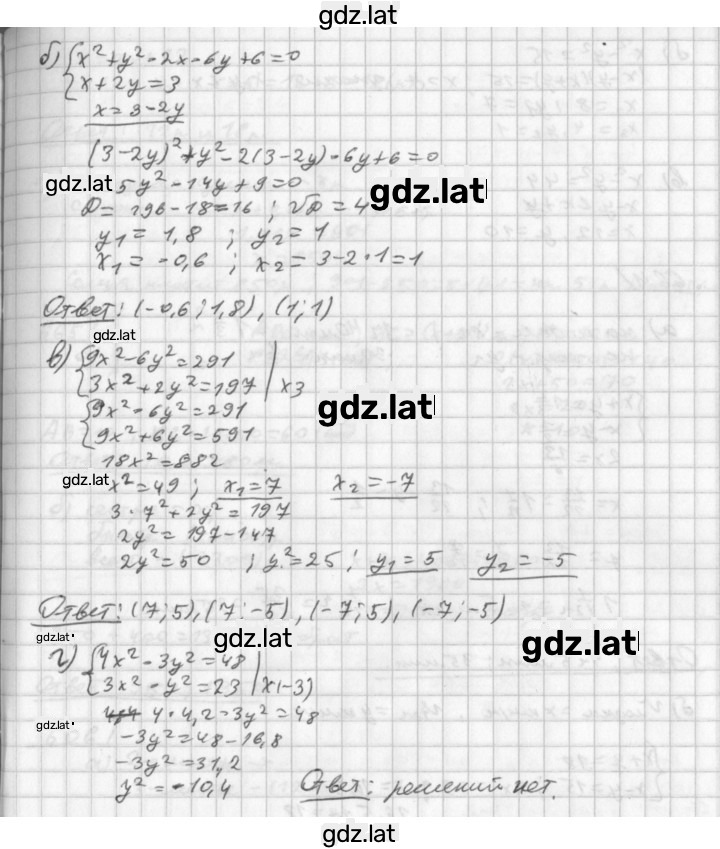 gdz.lat
б) { x² + y² - 2x - 6y + 6 = 0
x + 2y = 3
x = 3 - 2y
(3 - 2y)² + y² - 2(3 - 2y) - 6y + 6 = 0
gdz.lat 5y² - 14y + 9 = 0 gdz.lat
D = 196 - 18 = 16 ; √D = 4
y₁ = 1,8 ; y₂ = 1
x₁ = -0,6 ; x₂ = 3 - 2·1 = 1
Ответ: (-0,6; 1,8), (1; 1)
gdz.lat
в) { 9x² - 6y² = 291
3x² + 2y² = 197 | x3
{ 9x² - 6y² = 291 gdz.lat
9x² + 6y² = 591
18x² = 882
gdz.lat x² = 49 ; x₁ = 7 x₂ = -7
3 · 7² + 2y² = 197
2y² = 197 - 147
2y² = 50 ; y² = 25 ; y₁ = 5 y₂ = -5
Ответ: (7; 5), (7; -5), (-7; 5), (-7; -5)
gdz.lat gdz.lat gdz.lat
г) { 4x² - 3y² = 48
3x² - y² = 23 | x(-3)
4 · 4,2 - 3y² = 48
gdz.lat -3y² = 48 - 16,8
-3y² = 31,2
y² = -10,4 Ответ: решений нет.
gdz.lat